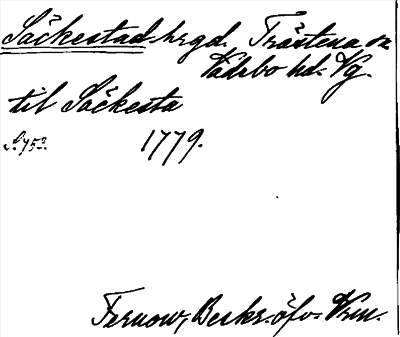 Säckestad hrgd. Tråstena sn
Vadsbo hd. Vg.
til Säckesta
S. 753. 1779.
Fernow, Beskr. öfv. Vrm.